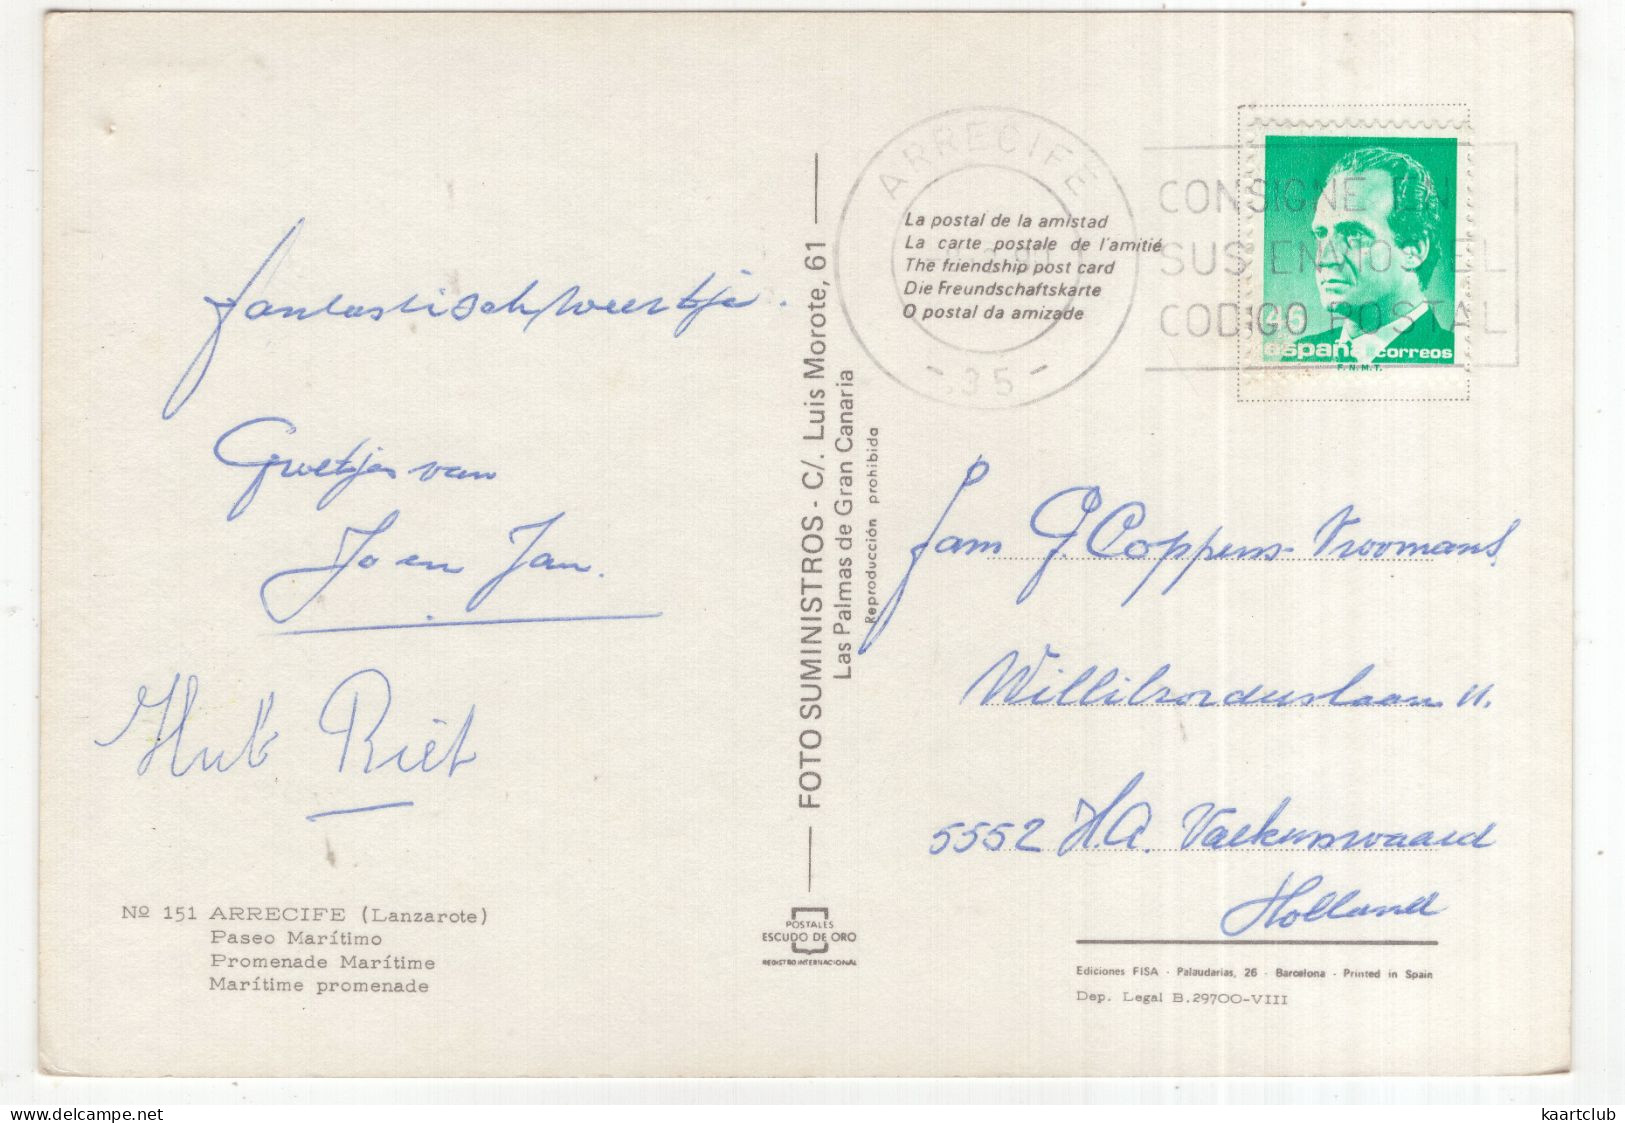 fantastisch weertje.
Groetjes van
Jo en Jan.
Hub Riet
Nº 151 ARRECIFE (Lanzarote)
Paseo Marítimo
Promenade Marítime
Marítime promenade
FOTO SUMINISTROS - C/. Luis Morote, 61
Las Palmas de Gran Canaria
Reproducción prohibida
POSTALES
ESCUDO DE ORO
REGISTRO INTERNACIONAL
ARRECIFE
- 35 -
La postal de la amistad
La carte postale de l'amitié
The friendship post card
Die Freundschaftskarte
O postal da amizade
CONSIGNE EN
SUS ENVIOS EL
CODIGO POSTAL
46
españa correos
F.N.M.T.
fam G. Coppens-Vroomans
Willibrorduslaan 11.
5552 H.A. Valkenswaard
Holland
Ediciones FISA - Palaudarias, 26 - Barcelona - Printed in Spain
Dep. Legal B.29700-VIII
delcampe.net
kaartclub